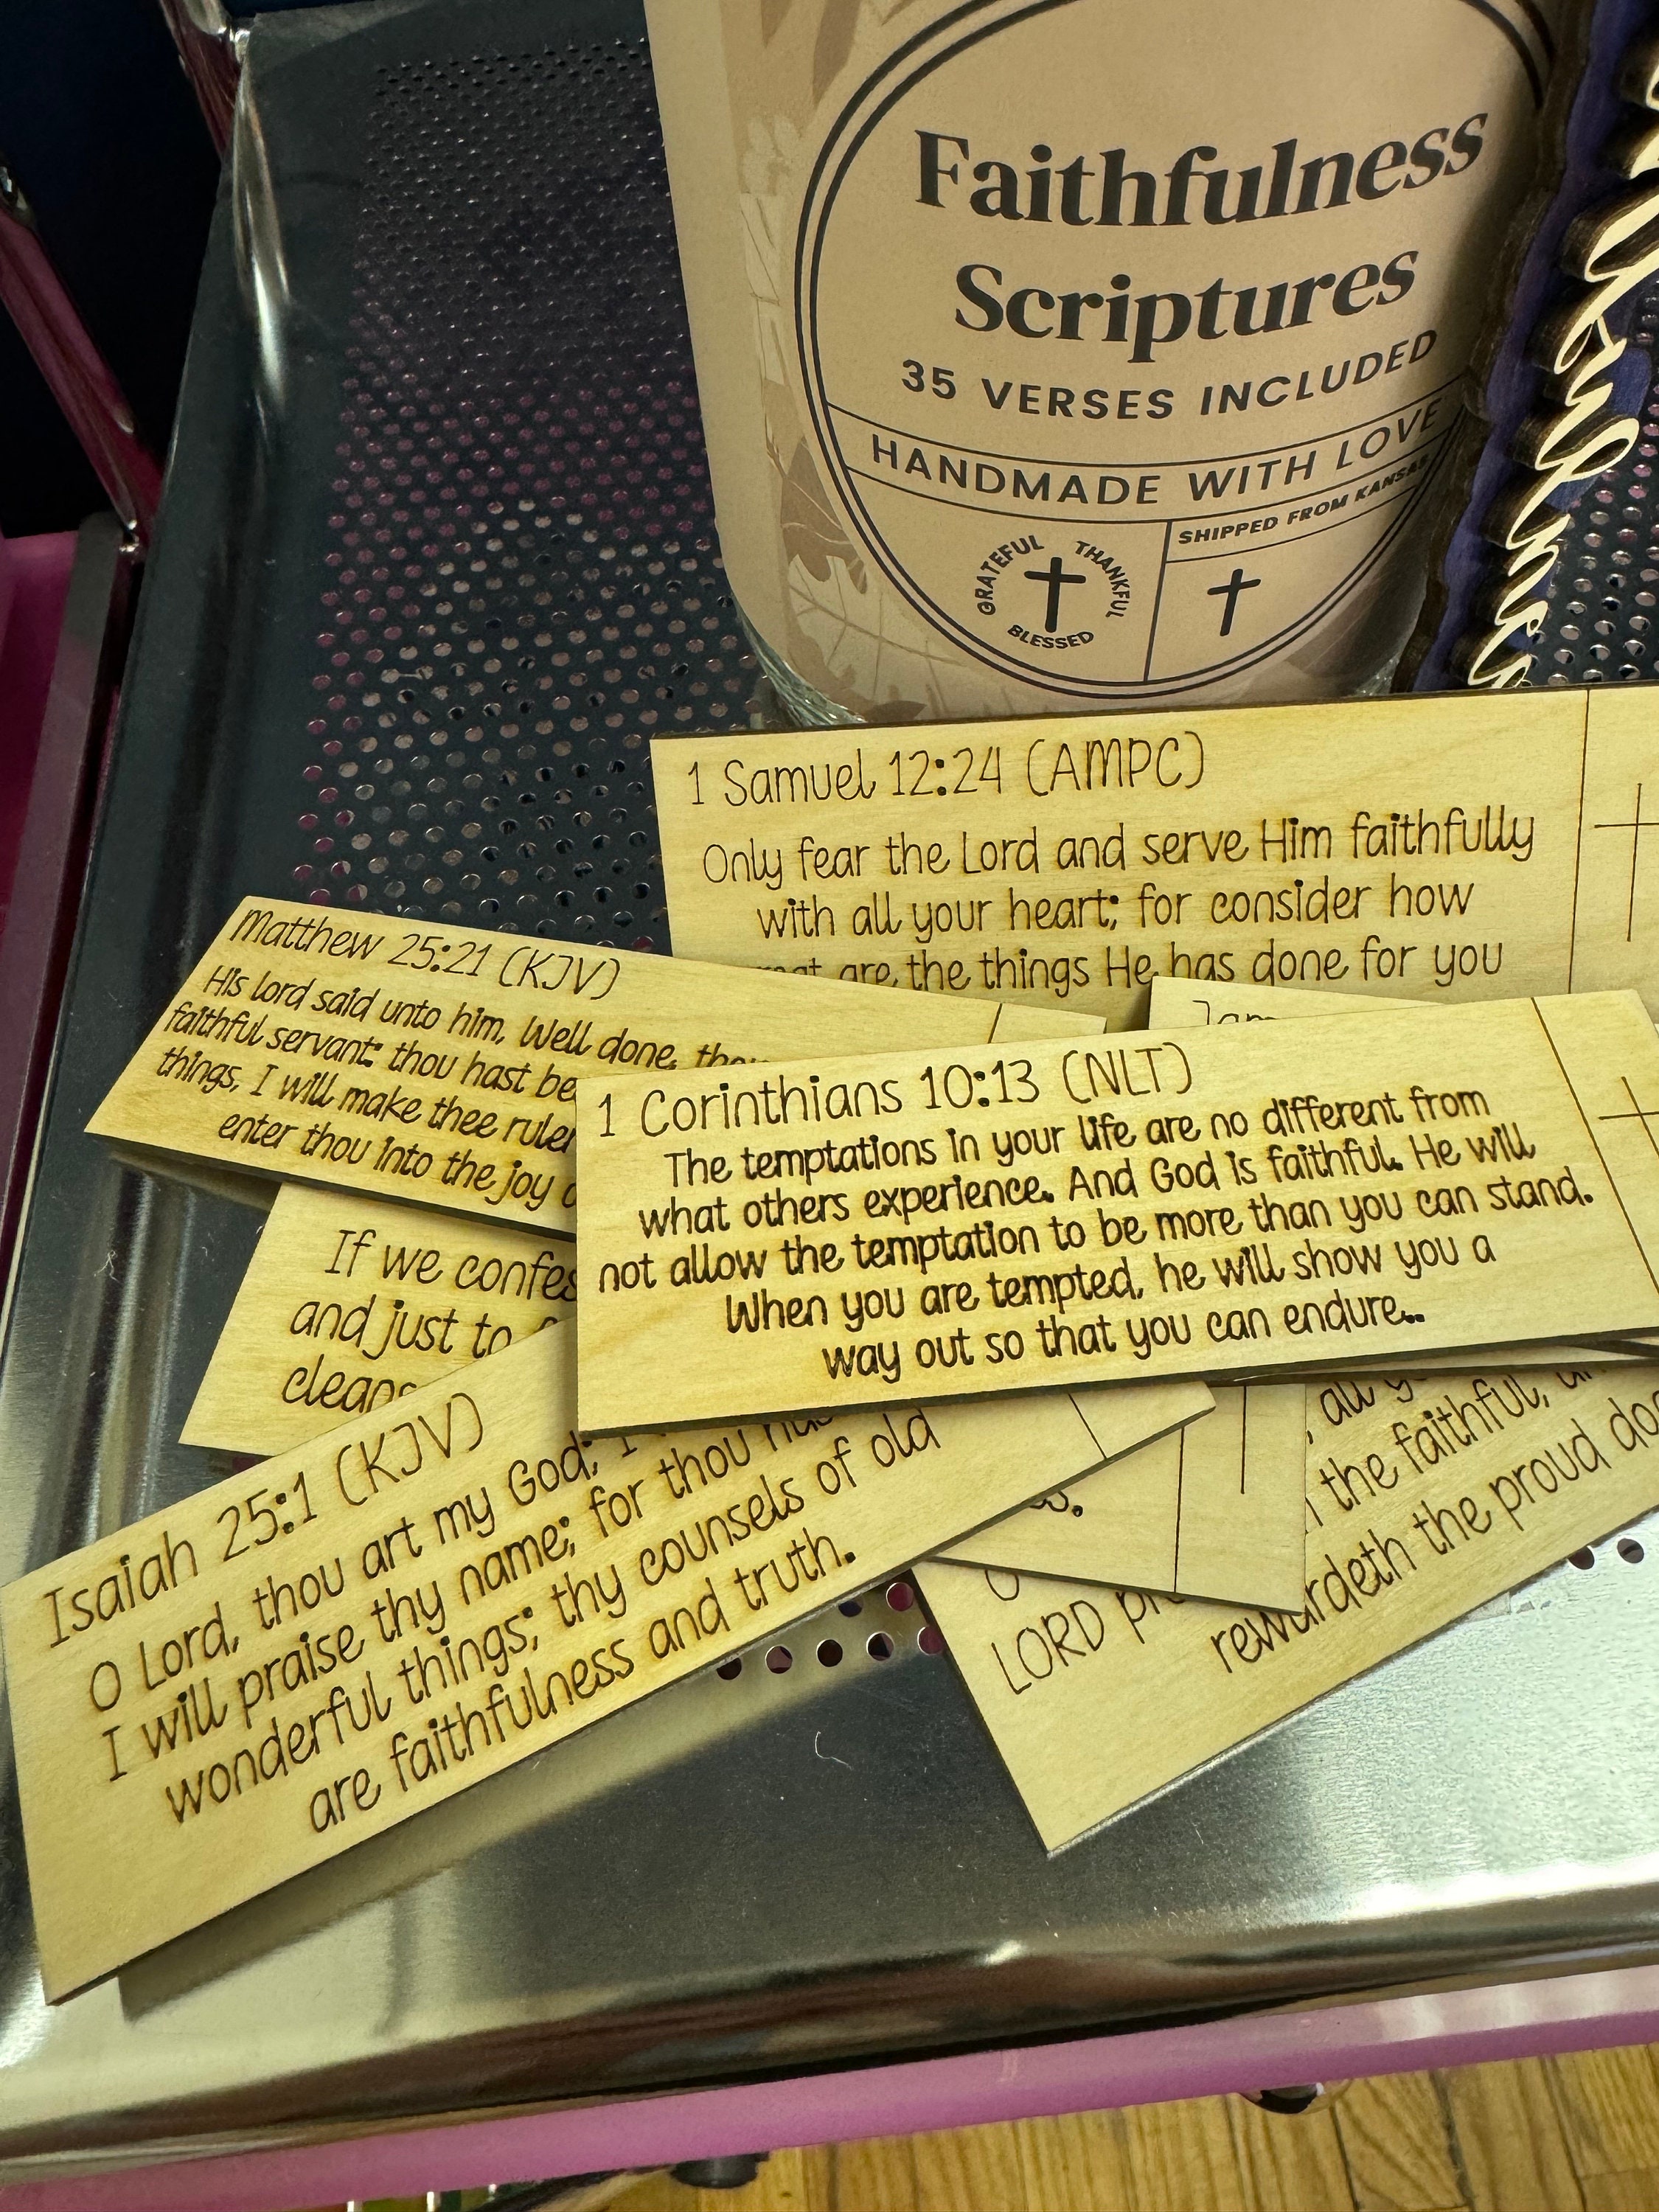 Faithfulness
Scriptures
35 VERSES INCLUDED
HANDMADE WITH LOVE
SHIPPED FROM KANSAS
GRATEFUL THANKFUL
BLESSED
1 Samuel 12:24 (AMPC)
Only fear the Lord and serve Him faithfully
with all your heart; for consider how
are the things He has done for you
Matthew 25:21 (KJV)
His lord said unto him, Well done,
faithful servant: thou hast
things, I will make thee ruler
enter thou into the joy
1 Corinthians 10:13 (NLT)
The temptations in your life are no different from
what others experience. And God is faithful. He will
not allow the temptation to be more than you can stand.
When you are tempted, he will show you a
way out so that you can endure..
If we confes
and just to
Isaiah 25:1 (KJV)
O Lord, thou art my God; I
I will praise thy name; for thou
wonderful things; thy counsels of old
are faithfulness and truth.
all
the faithful,
LORD
rewardeth the proud